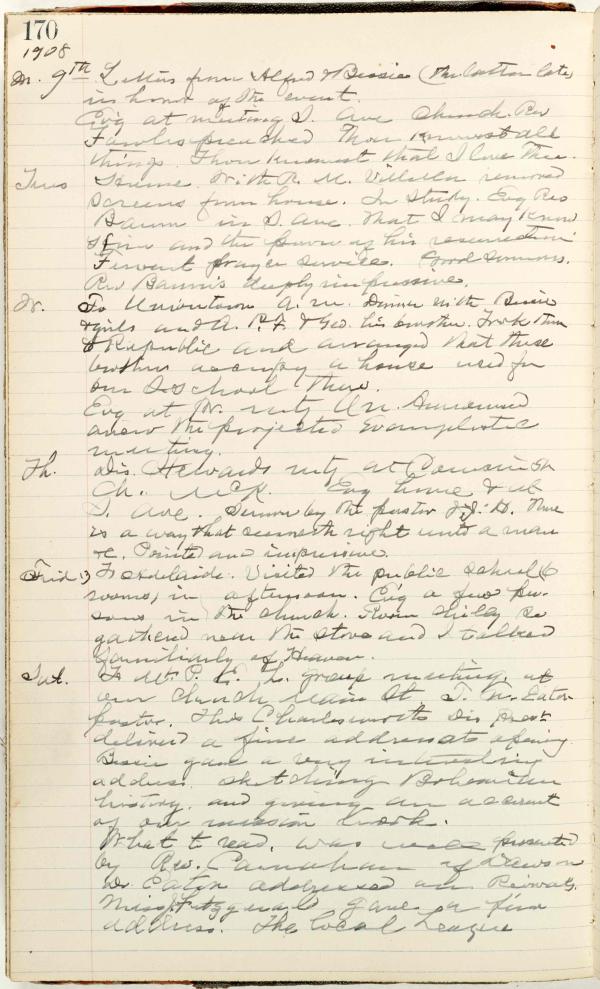 170
1908
M. 9th Letters from Alfred & Bessie (the latter late)
in honor of the event.
Evg at meeting S. Ave Church. Rev
Fowles preached Thou knowest all
things Thou knowest that I love Thee.
Tues Home. With R. M. removed
screens from house. In study. Evg Rev
Baum in S. Ave. That I may know
Him and the power of his resurrection
Fervent prayer service. Good sermons.
Rev Baum's deeply impressive.
W. To Uniontown a.m. Dinner with Bessie
& girls and A. P. F. & Geo. his brother. Took them
to Republic and arranged that these
brothers occupy a house used for
our S. School there.
Evg at Pr. mtg Un. Announced
anew the projected Evangelistic
meeting.
Th. Dis. Stewards mtg at
Ch. McK. Evg home & at
S. Ave. Sermon by the pastor There
is a way that seemeth right unto a man
&c. Pointed and impressive.
Frid 13 To Adelaide. Visited the public school (6
rooms) in afternoon. Evg a few per-
sons in the church. Room chilly so
gathered near the stove and I talked
familiarly of Heaven.
Sat. To Mt. P. E. L. group meeting at
our church Main St T. N. Eaton
pastor. Charlesworth Dis. Pres.
delivered a fine address at opening.
Bessie gave a very interesting
address sketching Bohemian
history, and giving an account
of our mission work.
What to read, was well presented
by Rev. Carnahan of Dawson
Dr. Eaton addressed on Revivals.
Miss Fitzgerald gave a fine
address. The local League